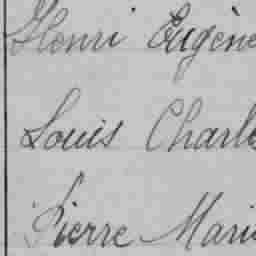 Henri Eugène
Louis Charl
Pierre Mari